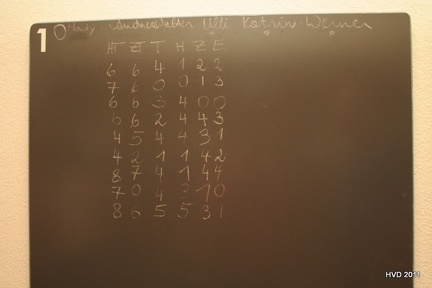 1
Ulli Katrin Werner
H Z T H Z E
6 6 4 1 2 2
7 6 0 0 1 3
6 6 3 4 0 0
6 6 2 4 4 3
4 5 4 4 3 1
4 2 1 1 4 2
8 7 4 1 4 4
7 0 4 3 1 0
8 6 5 5 3 1
HVD 2011